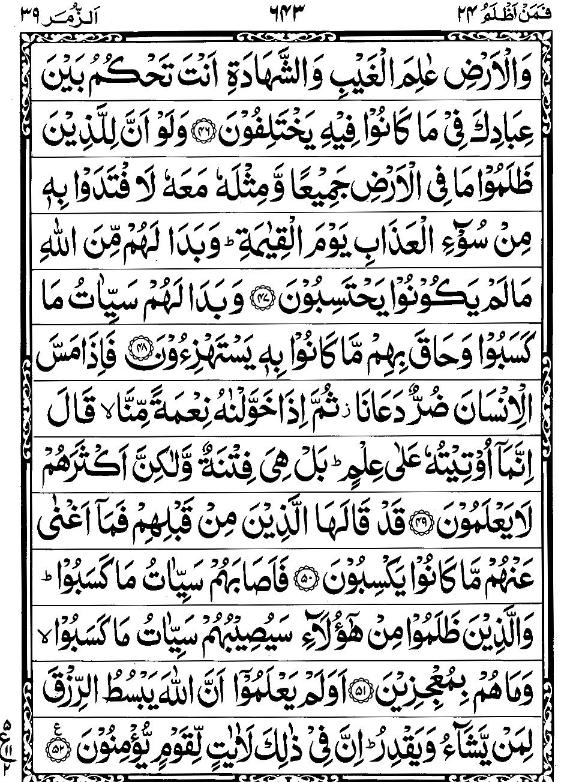 فَمَنْ اَظْلَمُ ٢٤ ٦٤٣ اَلزُّمَر ٣٩
وَالْاَرْضِ عٰلِمَ الْغَيْبِ وَالشَّهَادَةِ اَنْتَ تَحْكُمُ بَيْنَ
عِبَادِكَ فِيْ مَا كَانُوْا فِيْهِ يَخْتَلِفُوْنَ ﴿۴۶﴾ وَلَوْ اَنَّ لِلَّذِيْنَ
ظَلَمُوْا مَا فِي الْاَرْضِ جَمِيْعًا وَّمِثْلَهٗ مَعَهٗ لَافْتَدَوْا بِهٖ
مِنْ سُوْٓءِ الْعَذَابِ يَوْمَ الْقِيٰمَةِ ؕ وَبَدَا لَهُمْ مِّنَ اللّٰهِ
مَا لَمْ يَكُوْنُوْا يَحْتَسِبُوْنَ ﴿۴۷﴾ وَبَدَا لَهُمْ سَيِّاٰتُ مَا
كَسَبُوْا وَحَاقَ بِهِمْ مَّا كَانُوْا بِهٖ يَسْتَهْزِءُوْنَ ﴿۴۸﴾ فَاِذَا مَسَّ
الْاِنْسَانَ ضُرٌّ دَعَانَا ز ثُمَّ اِذَا خَوَّلْنٰهُ نِعْمَةً مِّنَّا ۙ قَالَ
اِنَّمَاۤ اُوْتِيْتُهٗ عَلٰى عِلْمٍ ؕ بَلْ هِيَ فِتْنَةٌ وَّلٰكِنَّ اَكْثَرَهُمْ
لَا يَعْلَمُوْنَ ﴿۴۹﴾ قَدْ قَالَهَا الَّذِيْنَ مِنْ قَبْلِهِمْ فَمَاۤ اَغْنٰى
عَنْهُمْ مَّا كَانُوْا يَكْسِبُوْنَ ﴿۵۰﴾ فَاَصَابَهُمْ سَيِّاٰتُ مَا كَسَبُوْا ؕ
وَالَّذِيْنَ ظَلَمُوْا مِنْ هٰۤؤُلَآءِ سَيُصِيْبُهُمْ سَيِّاٰتُ مَا كَسَبُوْا ۙ
وَمَا هُمْ بِمُعْجِزِيْنَ ﴿۵۱﴾ اَوَلَمْ يَعْلَمُوْۤا اَنَّ اللّٰهَ يَبْسُطُ الرِّزْقَ
لِمَنْ يَّشَآءُ وَيَقْدِرُ ؕ اِنَّ فِيْ ذٰلِكَ لَاٰيٰتٍ لِّقَوْمٍ يُّؤْمِنُوْنَ ﴿۵۲﴾ ع
۵
ع ۱۱
۲